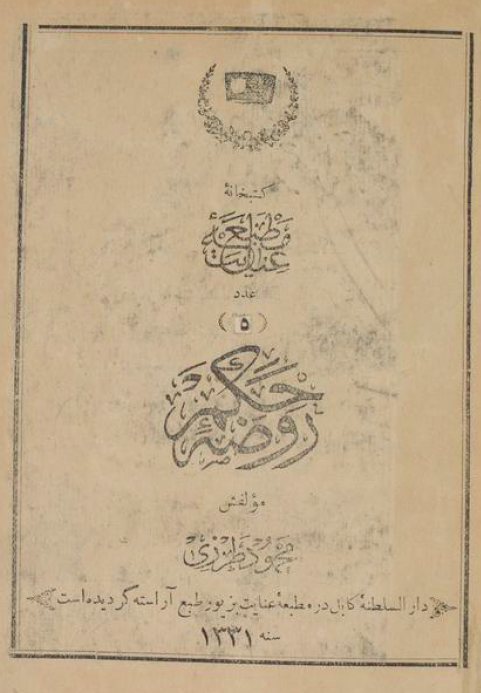 كتبخانهٔ
مطبعهٔ
عنایت
عدد
(۵)
روضهٔ حكم
مؤلفش
محمود طرزی
دار السلطنهٔ كابل در مطبعهٔ عنایت بزیور طبع آراسته گردیده است
سنه ۱۳۳۱